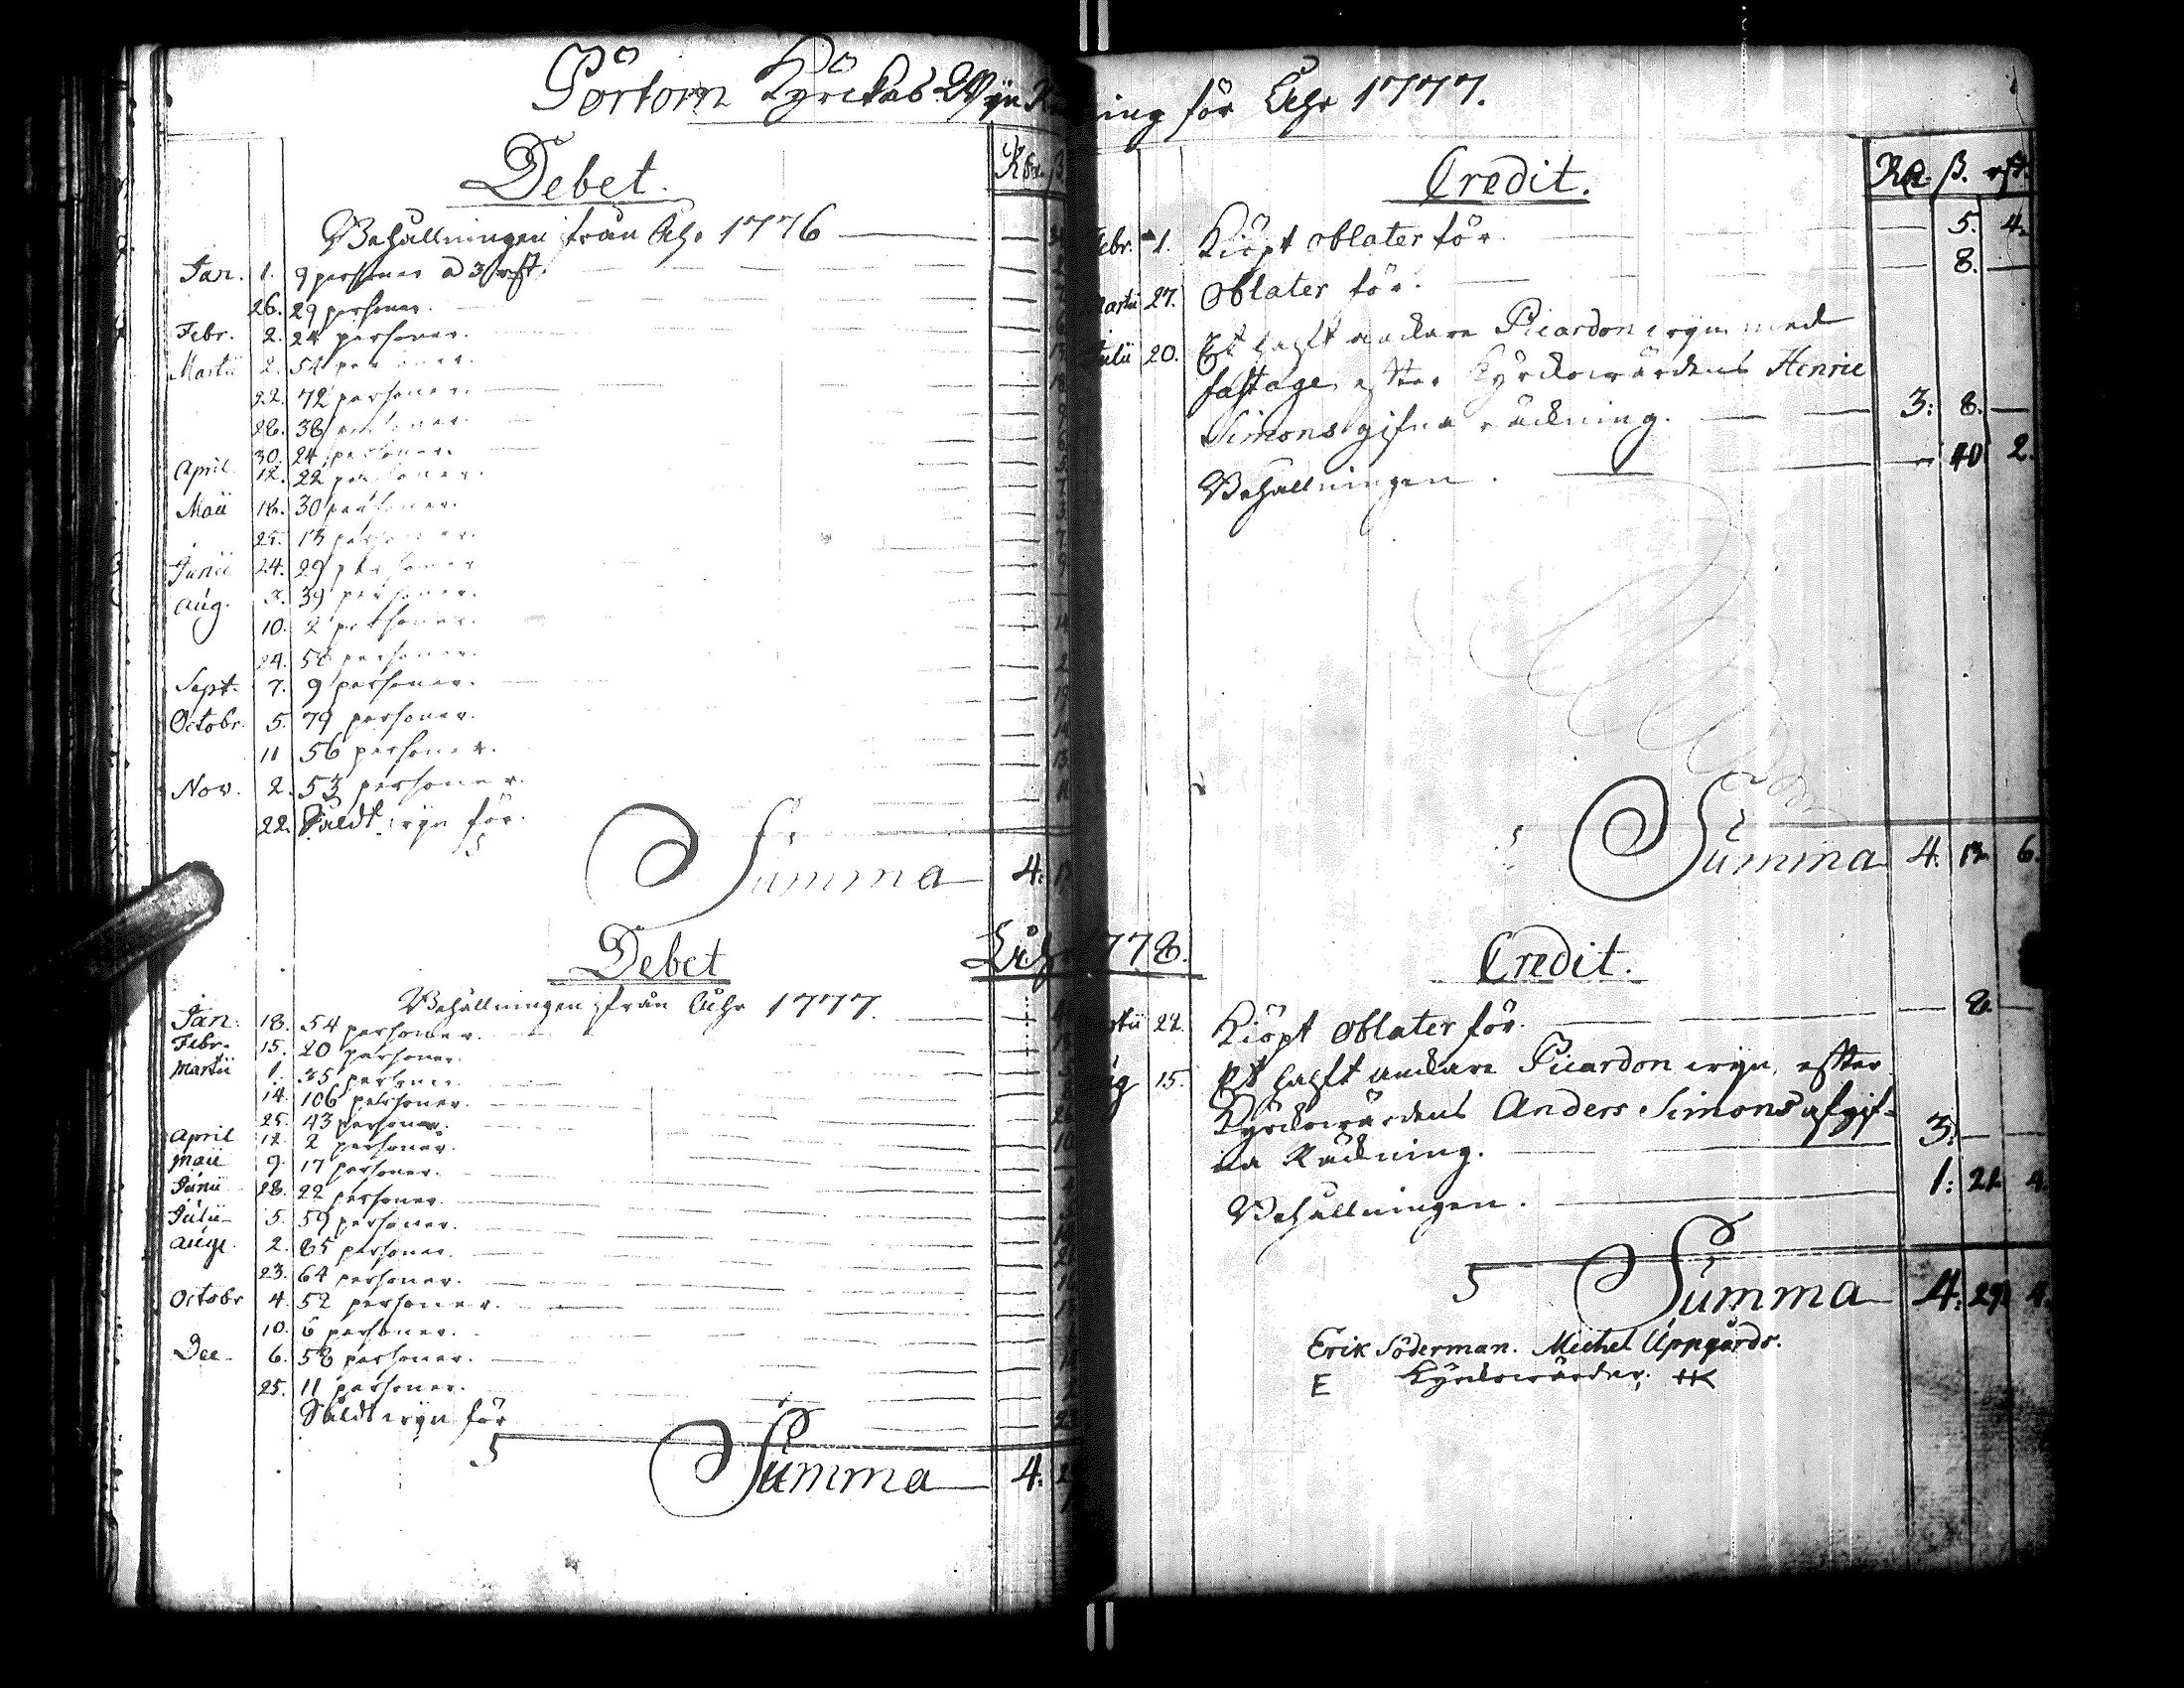 Pörtom Kyrckas Wijn
Debet.
Behållningen från Åhr 1776
Jan. 1. 9 personer a 3 rst.
26. 29 personer.
Febr. 2. 24 personer.
Martii 2. 54 personer.
22. 72 personer.
28. 38 personer.
30. 24 personer.
April 12. 22 personer.
Maii 18. 30 personer.
25. 13 personer.
Junii 24. 29 personer
Aug. 3. 39 personer.
10. 2 personer.
24. 58 personer.
Sept. 7. 9 personer.
Octobr. 5. 79 personer.
11 56 personer.
Nov. 2. 53 personer.
22. Såldt wijn för.
Summa 4.
Debet
Behållningen från Åhr 1777.
Jan. 18. 54 personer.
Febr. 15. 20 personer.
Martii 1. 35 personer.
14. 106 personer.
25. 43 personer.
April 12. 2 personer.
Maii 9. 17 personer.
Junii 28. 22 personer.
Julii 5. 59 personer.
Aug. 2. 85 personer.
23. 64 personer.
Octobr 4. 52 personer.
10. 6 personer.
Dec. 6. 58 personer.
25. 11 personer.
Såldt wijn för
Summa 4.
ning för Åhr 1777.
Credit.
ß. rst.
Febr. 1. Kiöpt oblater för 5. 4.
Martii 27. Oblater för. 8.
Julii 20. Et halft anckare Picardon wijn med
fastage efter Kyrckowärdens Henric
Simons gifna räckning. 3: 8.
Behållningen. 40 2.
Summa 4. 13. 6.
Åhr 1778.
Credit.
Martii 22. Kiöpt oblater för. 8.
Aug 15. Et halft anckare Picardon wijn, efter
Kyrckowärdens Anders Simons afgif-
na Räckning. 3.
Behållningen. 1: 21. 4.
Summa 4. 29. 4.
Erik Söderman. Michel Uppgårds.
E Kyrckowärder.